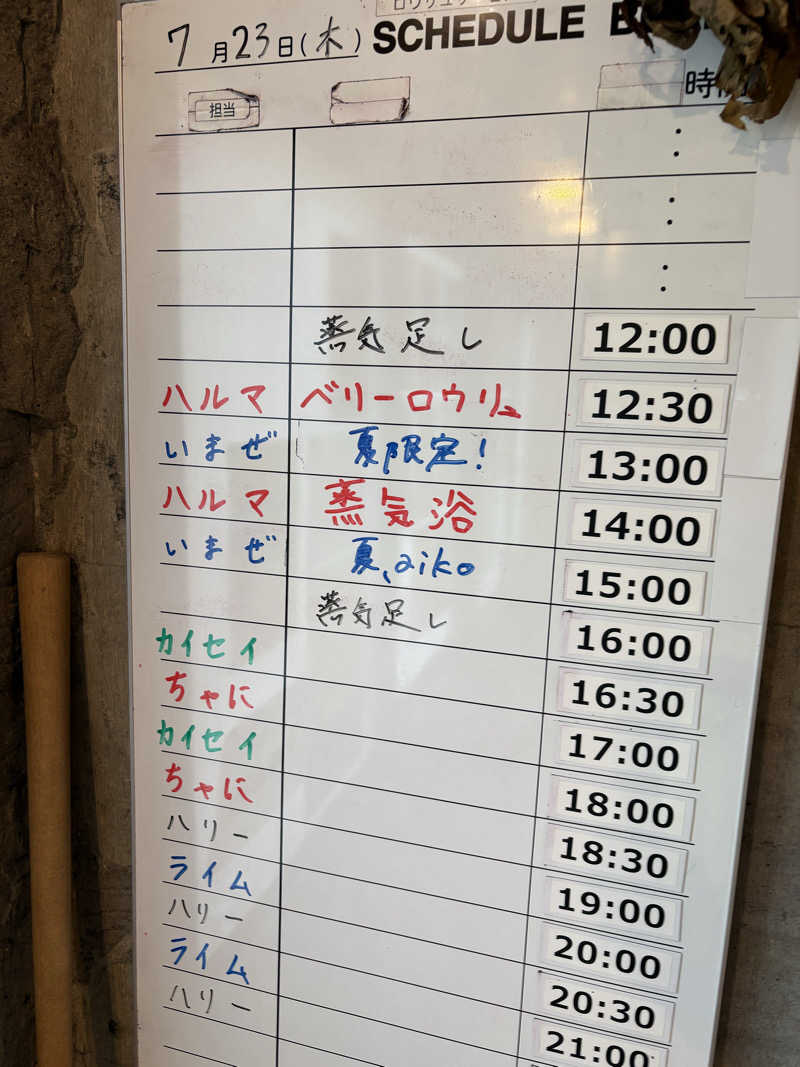 7月23日(木) SCHEDULE
担当 時間
:
:
:
蒸気足し 12:00
ハルマ ベリーロウリュ 12:30
いまぜ 夏限定! 13:00
ハルマ 蒸気浴 14:00
いまぜ 夏、aiko 15:00
蒸気足し 16:00
カイセイ 16:30
ちゃに 17:00
カイセイ 18:00
ちゃに 18:30
ハリー 19:00
ライム 20:00
ハリー 20:30
ライム 21:00
ハリー